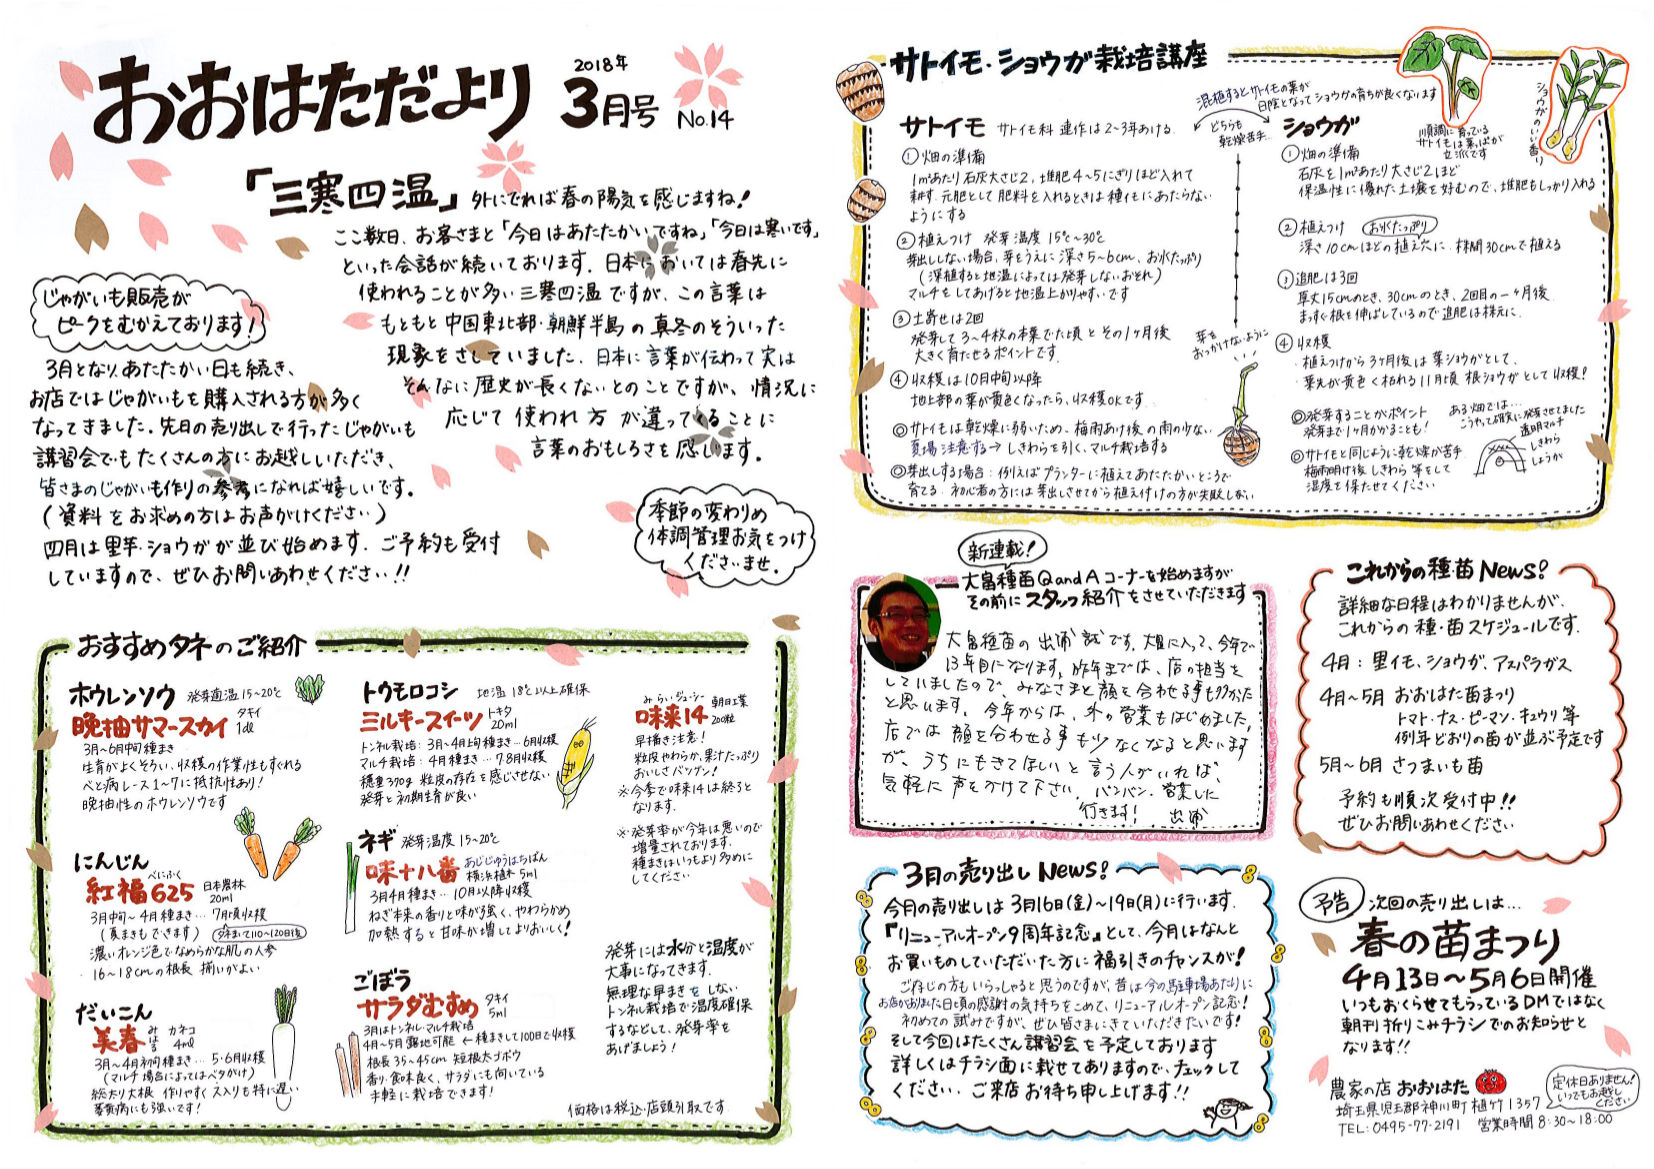 おおはただより
2018年
3月号
No.14
「三寒四温」外にでれば春の陽気を感じますね!
ここ数日、お客さまと「今日はあたたかいですね」「今日は寒いです」
といった会話が続いております。日本においては春先に
使われることが多い三寒四温ですが、この言葉は
もともと中国東北部・朝鮮半島の真冬のそういった
現象をさしていました。日本に言葉が伝わって実は
そんなに歴史が長くないとのことですが、情況に
応じて使われ方が違ってくることに
言葉のおもしろさを感じます。
じゃがいも販売が
ピークをむかえております!
3月となり、あたたかい日も続き、
お店ではじゃがいもを購入される方が多く
なってきました。先日の売り出しで行ったじゃがいも
講習会でもたくさんの方にお越しいただき、
皆さまのじゃがいも作りの参考になれば嬉しいです。
(資料をお求めの方はお声がけください)
四月は里芋・ショウガが並び始めます。ご予約も受付
していますので、ぜひお問いあわせください!!
季節の変わりめ
体調管理お気をつけ
くださいませ。
おすすめタネのご紹介
ホウレンソウ 発芽適温15~20℃
晩抽サマースカイ タキイ 1dl
3月~6月中旬種まき
生育がよくそろい、収穫の作業性もすぐれる
べと病レース1~7に抵抗性あり!
晩抽性のホウレンソウです
にんじん
べにふく
紅福625 日本農林 20ml
3月中旬~4月種まき…7月頃収穫
(夏まきもできます) タネまいて110~120日後
濃いオレンジ色でなめらかな肌の人参
16~18cmの根長 揃いがよい
だいこん
美春 みはる カネコ 4ml
3月~4月初旬種まき…5・6月収穫
(マルチ場合によってはベタがけ)
総太り大根 作りやすくス入りも特に遅い
萎黄病にも強いです!
トウモロコシ 地温18℃以上確保
ミルキースイーツ トキタ 20ml
トンネル栽培:3月~4月上旬種まき…6月収穫
マルチ栽培:4月種まき…7・8月収穫
穂重370g 粒皮の存在を感じさせない
発芽と初期生育が良い
ネギ 発芽温度15~20℃
味十八番 あじじゅうはちばん 横浜植木 5ml
3月4月種まき…10月以降収穫
ねぎ本来の香りと味が強く、やわらかめ
加熱すると甘味が増してよりおいしく!
ごぼう
サラダむすめ タキイ 5ml
3月はトンネル・マルチ栽培
4月~5月露地可能 ←種まきして100日で収穫
根長35~45cm 短根太ゴボウ
香り・食味良く、サラダにも向いている
手軽に栽培できます!
みらいジューシー
味来14 朝日工業 200粒
早播き注意!
粒皮やわらか、果汁たっぷり
おいしさバツグン!
※今季で味来14は終りと
なります。
※発芽率が今年は悪いので
増量されております。
種まきはいつもより多めに
してください
発芽には水分と温度が
大事になってきます。
無理な早まきをしない
トンネル栽培で温度確保
するなどして、発芽率を
あげましょう!
価格は税込・店頭引取です。
サトイモ・ショウガ栽培講座
混植するとサトイモの葉が
日陰となってショウガの育ちが良くなります
どちらも
乾燥苦手…
サトイモ サトイモ科 連作は2~3年あける。
①畑の準備
1m²あたり石灰大さじ2、堆肥4~5にぎりほど入れて
耕す。元肥として肥料を入れるときは種イモにあたらない
ようにする
②植えつけ 発芽温度15℃~30℃
芽出ししない場合、芽をうえに深さ5~6cm、お水たっぷり
(深植すると地温によっては発芽しないおそれ)
マルチをしてあげると地温上がりやすいです
③土寄せは2回
発芽して3~4枚の本葉でた頃とその1ヶ月後
大きく育たせるポイントです。
④収穫は10月中旬以降
地上部の葉が黄色くなったら、収穫OKです
◎サトイモは乾燥に弱いため、梅雨あけ後の雨の少ない
夏場注意する→しきわらを引く、マルチ栽培する
◎芽出しする場合:例えばプランターに植えてあたたかいところで
育てる。初心者の方には芽出しさせてから植え付けの方が失敗しない
芽を
おっかけないように
順調に育っている
サトイモは葉っぱが
立派です
ショウガのいい香り
ショウガ
①畑の準備
石灰を1m²あたり大さじ2ほど
保温性に優れた土壌を好むので、堆肥もしっかり入れる
②植えつけ お水たっぷり
深さ10cmほどの植え穴に、株間30cmで植える
③追肥は3回
草丈15cmのとき、30cmのとき、2回目の一ヶ月後
まっすぐ根を伸ばしているので追肥は株元に。
④収穫
・植えつけから3ヶ月後は葉ショウガとして、
・葉先が黄色く枯れる11月頃 根ショウガとして収穫!
◎発芽することがポイント
発芽まで1ヶ月かかることも!
◎サトイモと同じように乾燥が苦手
梅雨明け後しきわら等をして
湿度を保たせてください
ある畑では…
こうやって確実に発芽させてました
透明マルチ
しきわら
しょうが
新連載!
大畠種苗QandAコーナーを始めますが
その前にスタッフ紹介をさせていただきます
大畠種苗の出浦誠です。大畠に入って、今年で
13年目になります。昨年までは、店の担当を
していましたので、みなさまと顔を合わせる事も多かった
と思います。今年からは、外の営業もはじめました。
店では顔を合わせる事も少なくなると思います
が、うちにもきてほしいと言う人がいれば、
気軽に声をかけて下さい。バンバン営業しに
行きます! 出浦
これからの種・苗News!
詳細な日程はわかりませんが、
これからの種・苗スケジュールです。
4月:里イモ、ショウガ、アスパラガス
4月~5月 おおはた苗まつり
トマト・ナス・ピーマン・キュウリ等
例年どおりの苗が並ぶ予定です
5月~6月 さつまいも苗
予約も順次受付中!!
ぜひお問いあわせください
3月の売り出しNews!
今月の売り出しは3月16日(金)~19日(月)に行います。
『リニューアルオープン9周年記念』として、今月はなんと
お買いものしていただいた方に福引きのチャンスが!
ご存じの方もいらっしゃると思うのですが、昔は今の駐車場あたりに
お店がありました。日頃の感謝の気持ちをこめて、リニューアルオープン記念!
初めての試みですが、ぜひ皆さまにきていただきたいです!
そして今回はたくさん講習会を予定しております
詳しくはチラシ面に載せてありますので、チェックして
ください。ご来店お待ち申し上げます!!
予告 次回の売り出しは…
春の苗まつり
4月13日~5月6日開催
いつもおくらせてもらっているDMではなく
朝刊折りこみチラシでのお知らせと
なります!!
農家の店 おおはた
定休日ありません!
いつでもお越し
ください
埼玉県児玉郡神川町植竹1357
TEL:0495-77-2191 営業時間8:30~18:00